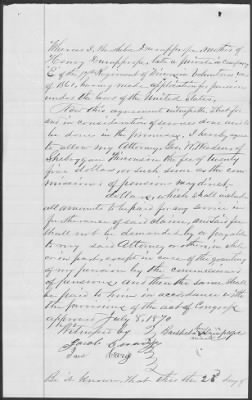 Whereas I, Barbeba Dumpprope, Mother of
Henry Dumpprope, late a private in Company
E of the 17th Regiment of Wisconsin Volunteers
of 1861, having made application for pension
under the laws of the United States.
Now this agreement witnesseth, that for
and in consideration of services done and to
be done in the premises, I hereby agree
to allow my Attorney, Geo. W. Weeden of
Sheboygan Wisconsin the fee of twenty
five dollars or such sum as the com-
missioner of pensions may direct.
dollars, which shall include
all amounts to be paid for any service in
furtherance of said claim, and said fee
shall not be demanded by or payable
to my said Attorney or otherwise in whole
or in part, except in case of the granting
of my pension by the commissioner
of pensions, and then the same shall
be paid to him in accordance with
the provisions of the act of Congress
approved July 8, 1870
Witnessed by
Jacob
Be it Known, that this the 28 day of